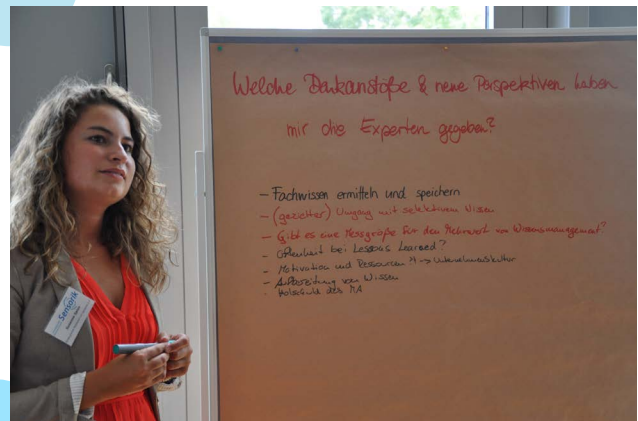 Welche Denkanstöße & neue Perspektiven haben
mir die Experten gegeben?
- Fachwissen ermitteln und speichern
- (gezielter) Umgang mit selektivem Wissen
- Gibt es eine Messgröße für den Mehrwert im Wissensmanagement?
- Offenheit bei Lessons Learned?
- Motivation und Ressourcen → Unternehmenskultur
- Aufbereitung von Wissen
- Holschuld des MA
Sensorik